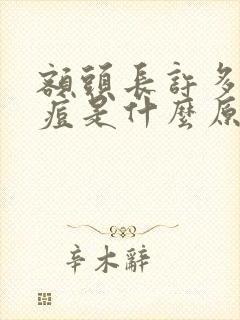 額頭長許多
痘是什麼原
辛木辭